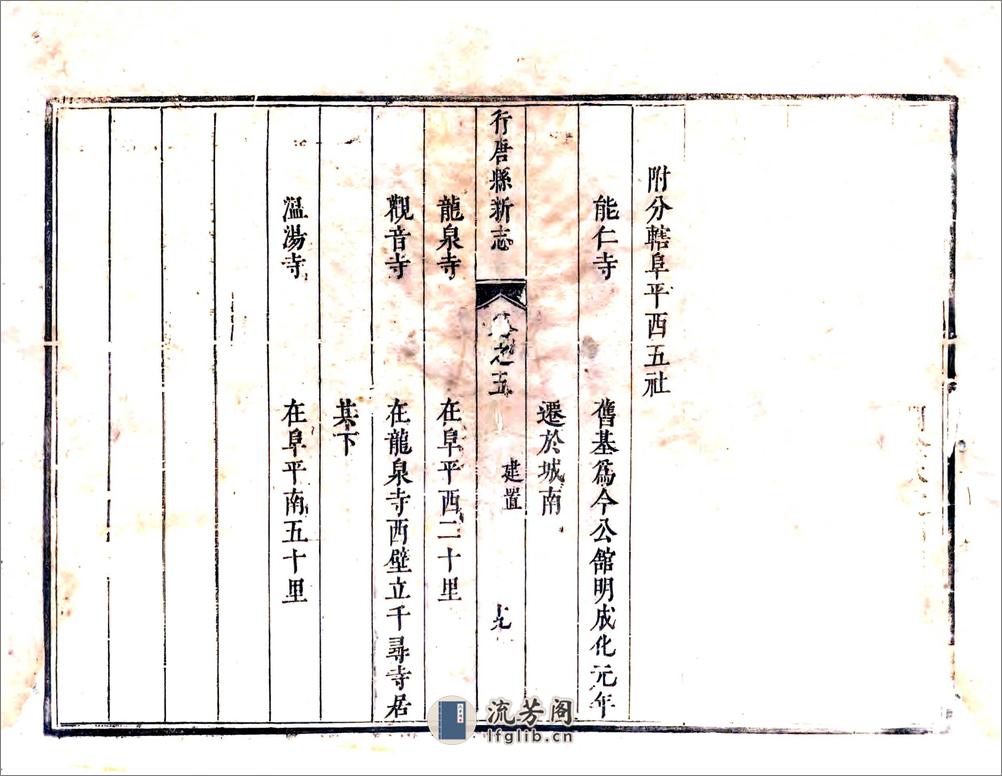 附分轄阜平西五社
能仁寺 舊基爲今公館明成化元年
遷於城南
行唐縣新志 卷之五 建置
龍泉寺 在阜平西二十里
觀音寺 在龍泉寺西壁立千尋寺居
其下
温湯寺 在阜平南五十里
流芳阁
lfglib.cn